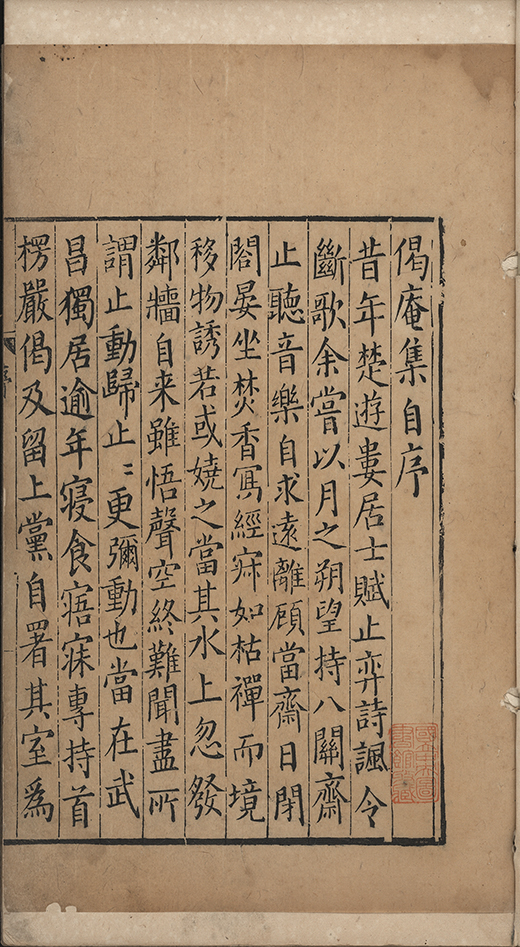 偈庵集自序
昔年楚遊婁居士賦止弈詩諷令
斷歌余嘗以月之朔望持八關齋
止聽音樂自求遠離顧當齋日閉
閤晏坐焚香寫經寂如枯禪而境
移物誘若或嬈之當其水上忽發
鄰牆自来雖悟聲空終難聞盡所
謂止動歸止〻更彌動也當在武
昌獨居逾年寢食寤寐專持首
楞嚴偈及留上黨自署其室為
序
國立中央圖
書館收藏